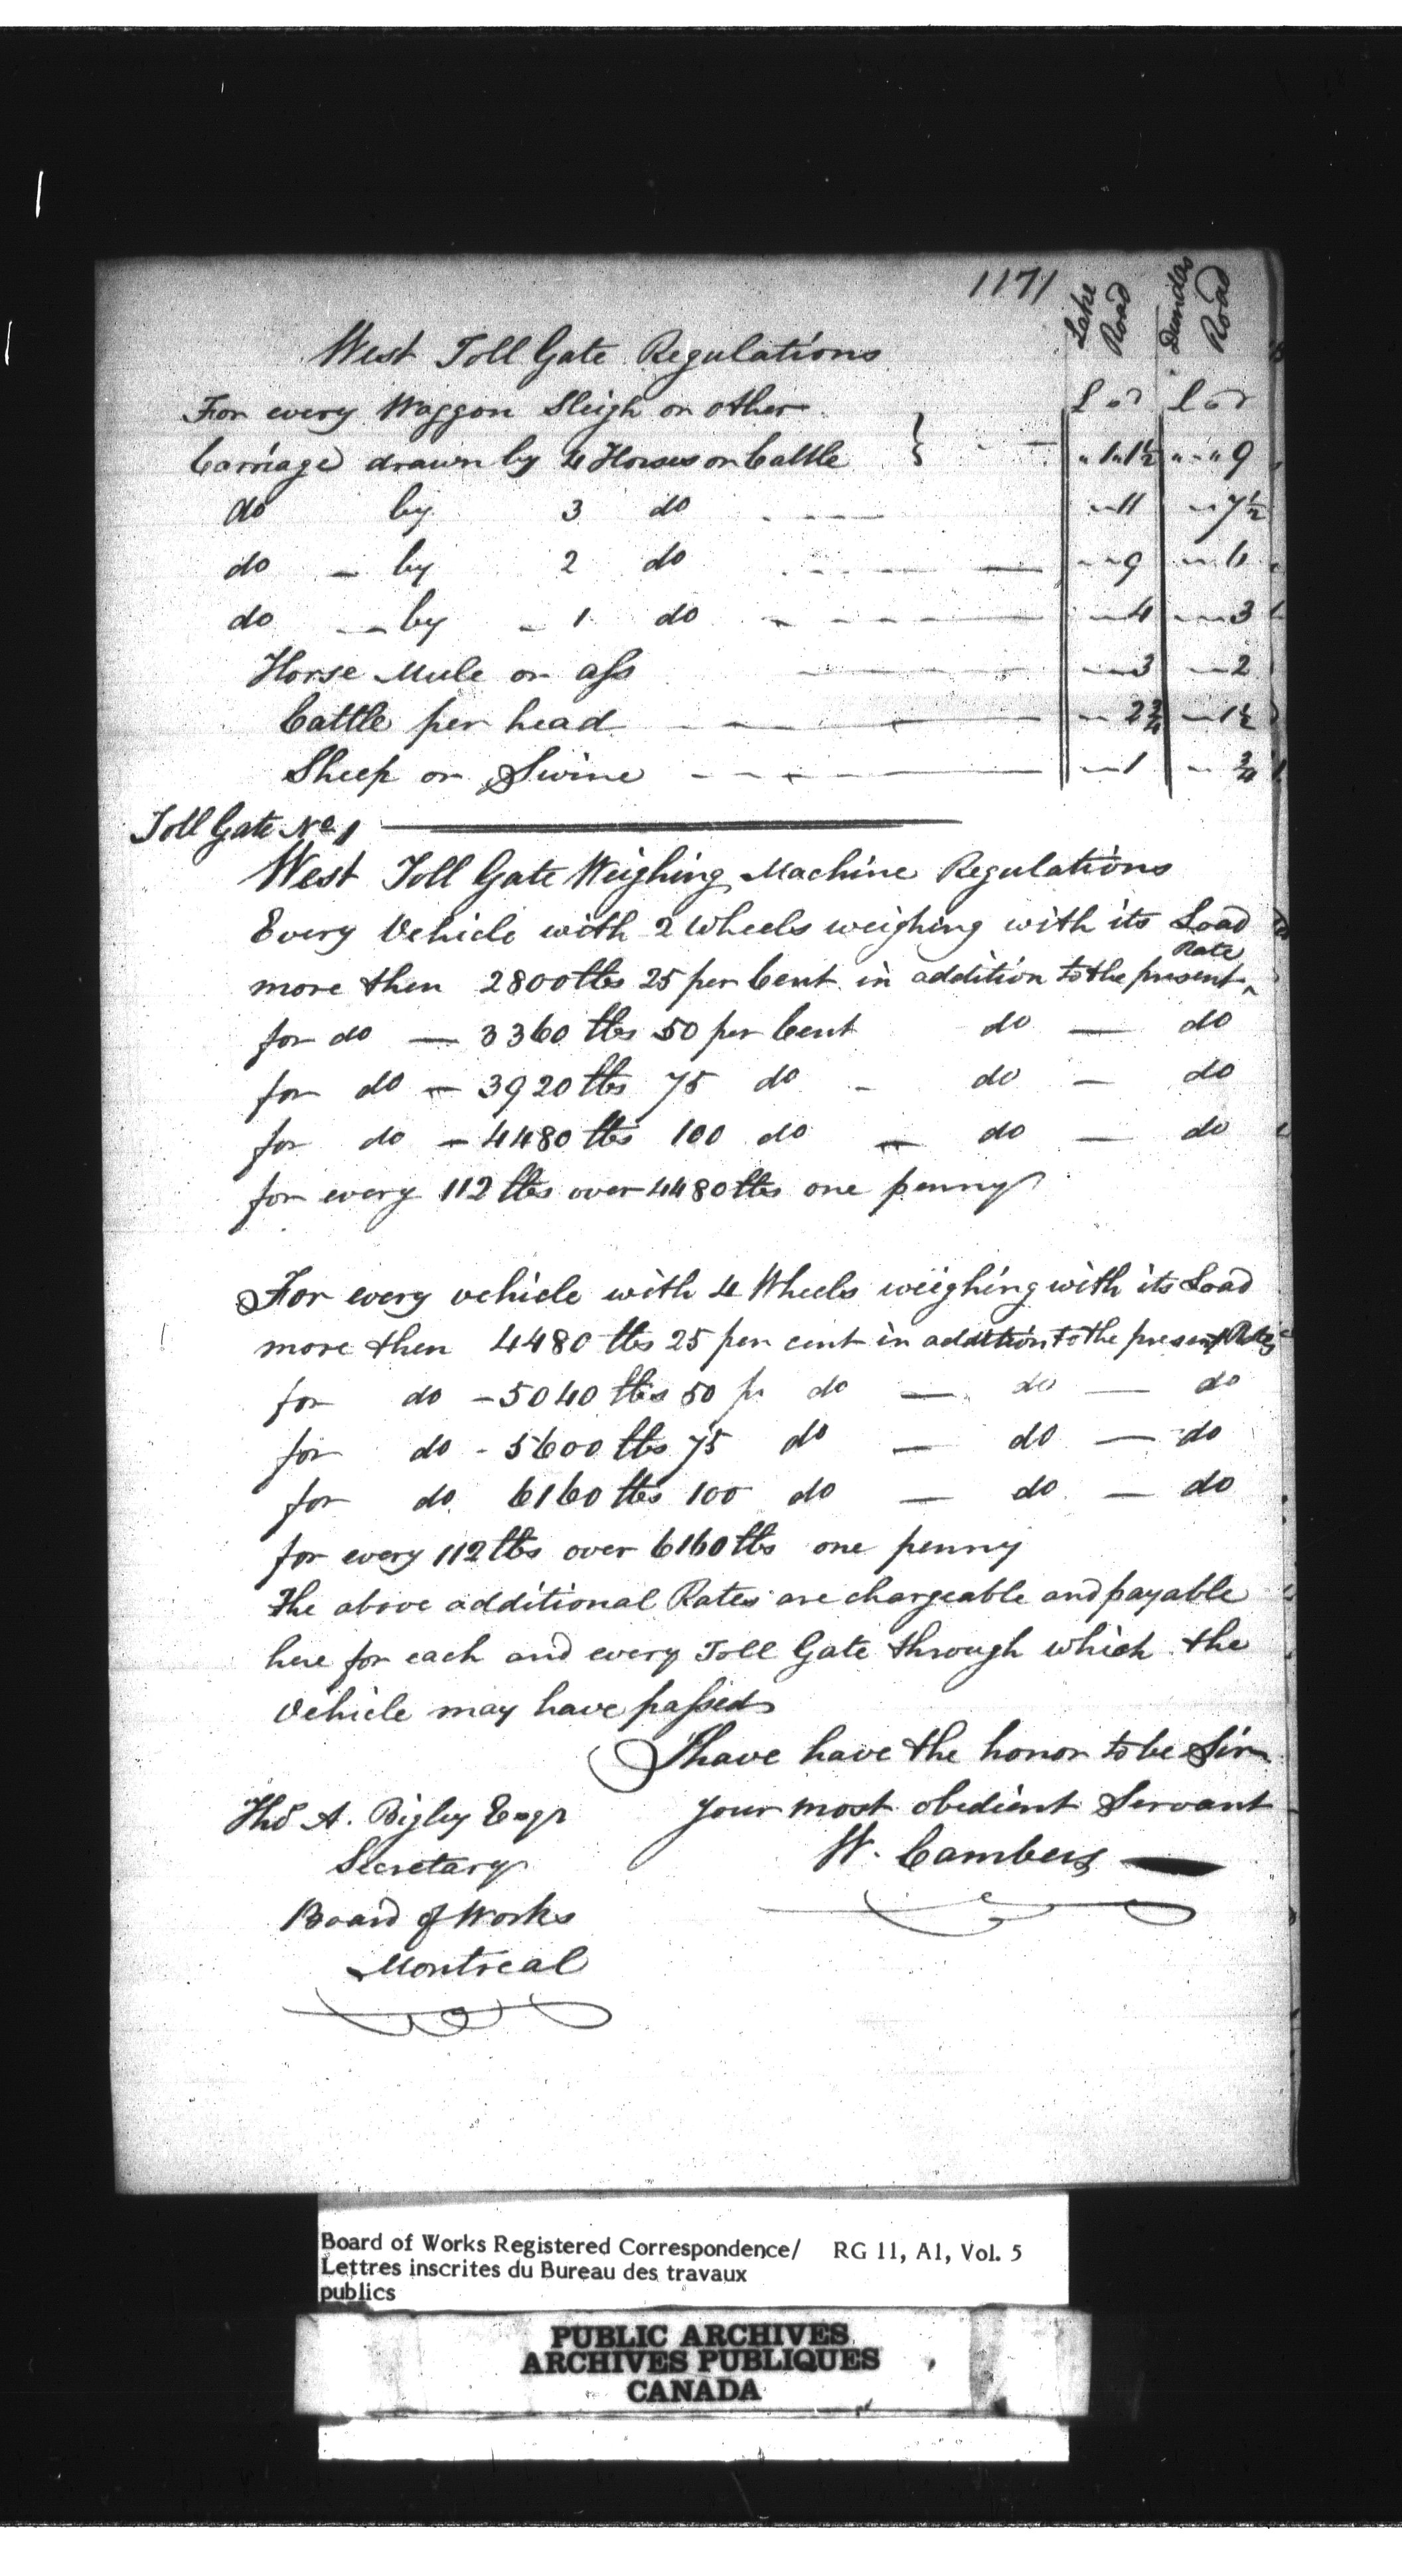 1171
Lake Road
Dundas Road
West Toll Gate Regulations
£ s d £ s d
For every Waggon Sleigh or other
Carriage drawn by 4 Horses or Cattle } - - - " 1 " 1½ " - " 9
do by 3 do - - - - " 11 - " 7½
do - by 2 do - - - - - " 9 - " 6
do - by - 1 do - - - - - " 4 - " 3
Horse Mule or ass - - - - " 3 - " 2
Cattle per head - - - - - " 2¾ - " 1½
Sheep or Swine - - - - - " 1 - " ¾
Toll Gate No 1
West Toll Gate Weighing Machine Regulations
Every Vehicle with 2 Wheels weighing with its Load
Rate
more then 2800 lbs 25 per Cent in addition to the present ^
for do — 3360 lbs 50 per Cent do — do
for do — 3920 lbs 75 do - do — do
for do — 4480 lbs 100 do — do — do
for every 112 lbs over 4480 lbs one penny
For every vehicle with 4 Wheels weighing with its Load
more then 4480 lbs 25 per cent in addition to the present Rates
for do - 5040 lbs 50 pr do — do — do
for do - 5600 lbs 75 do — do — do
for do 6160 lbs 100 do — do — do
for every 112 lbs over 6160 lbs one penny
The above additional Rates are chargeable and payable
here for each and every Toll Gate through which the
Vehicle may have passed
I have have the honor to be Sir
your most obedient Servant
Thos A. Bigley Esqr
W. Cambers
Secretary
Board of Works
Montreal
Board of Works Registered Correspondence/ RG 11, A1, Vol. 5
Lettres inscrites du Bureau des travaux
publics
PUBLIC ARCHIVES
ARCHIVES PUBLIQUES
CANADA